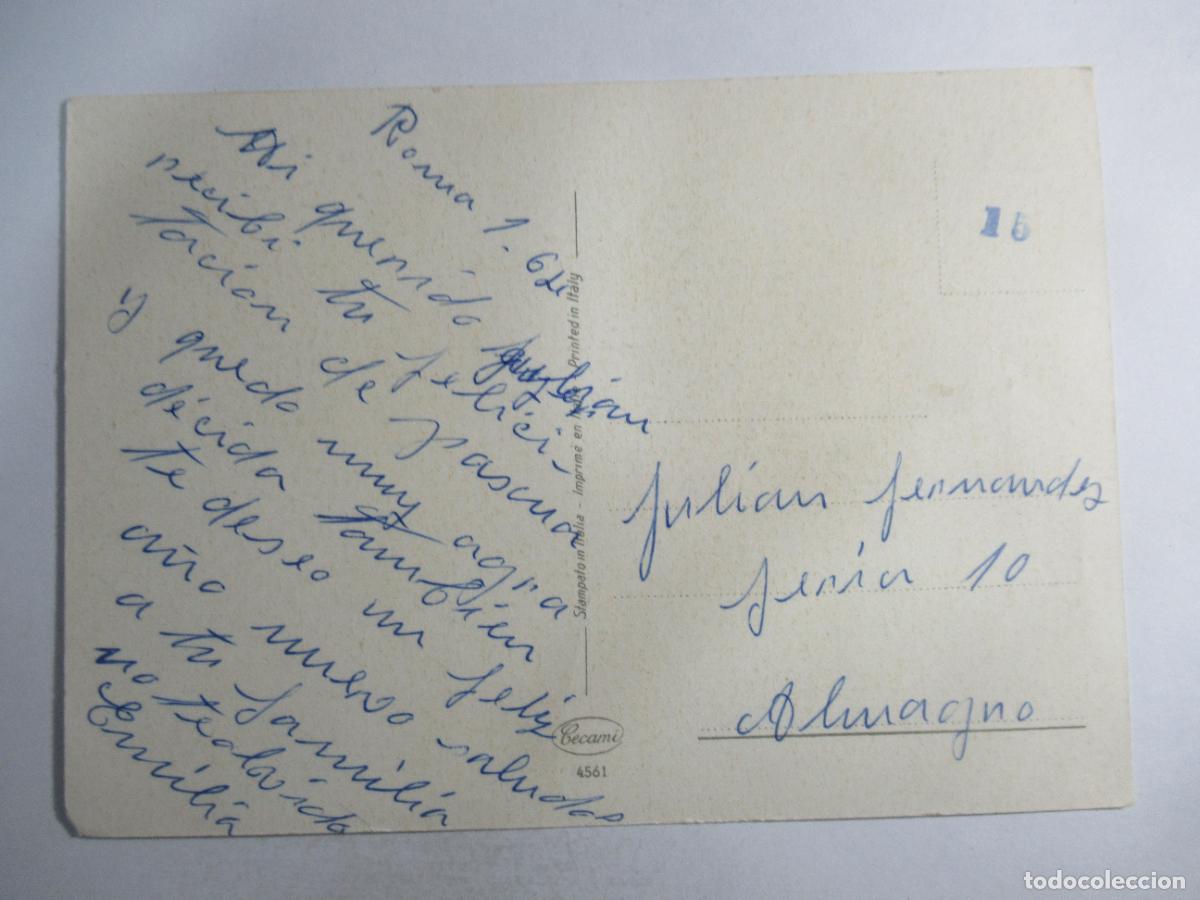 Roma 1. 64
Mi querido Julián
recibi tu felici-
tacian de pascua
y quedo muy agra
décida tambien
te deseo un feliz
año nuevo saludas
a tu familia
no te olvida
Emilia
Stampato in Italia - Imprimé en Italie - Printed in Italy
Cecami
4561
15
Julian fernandez
feria 10
Almagro
todocoleccion